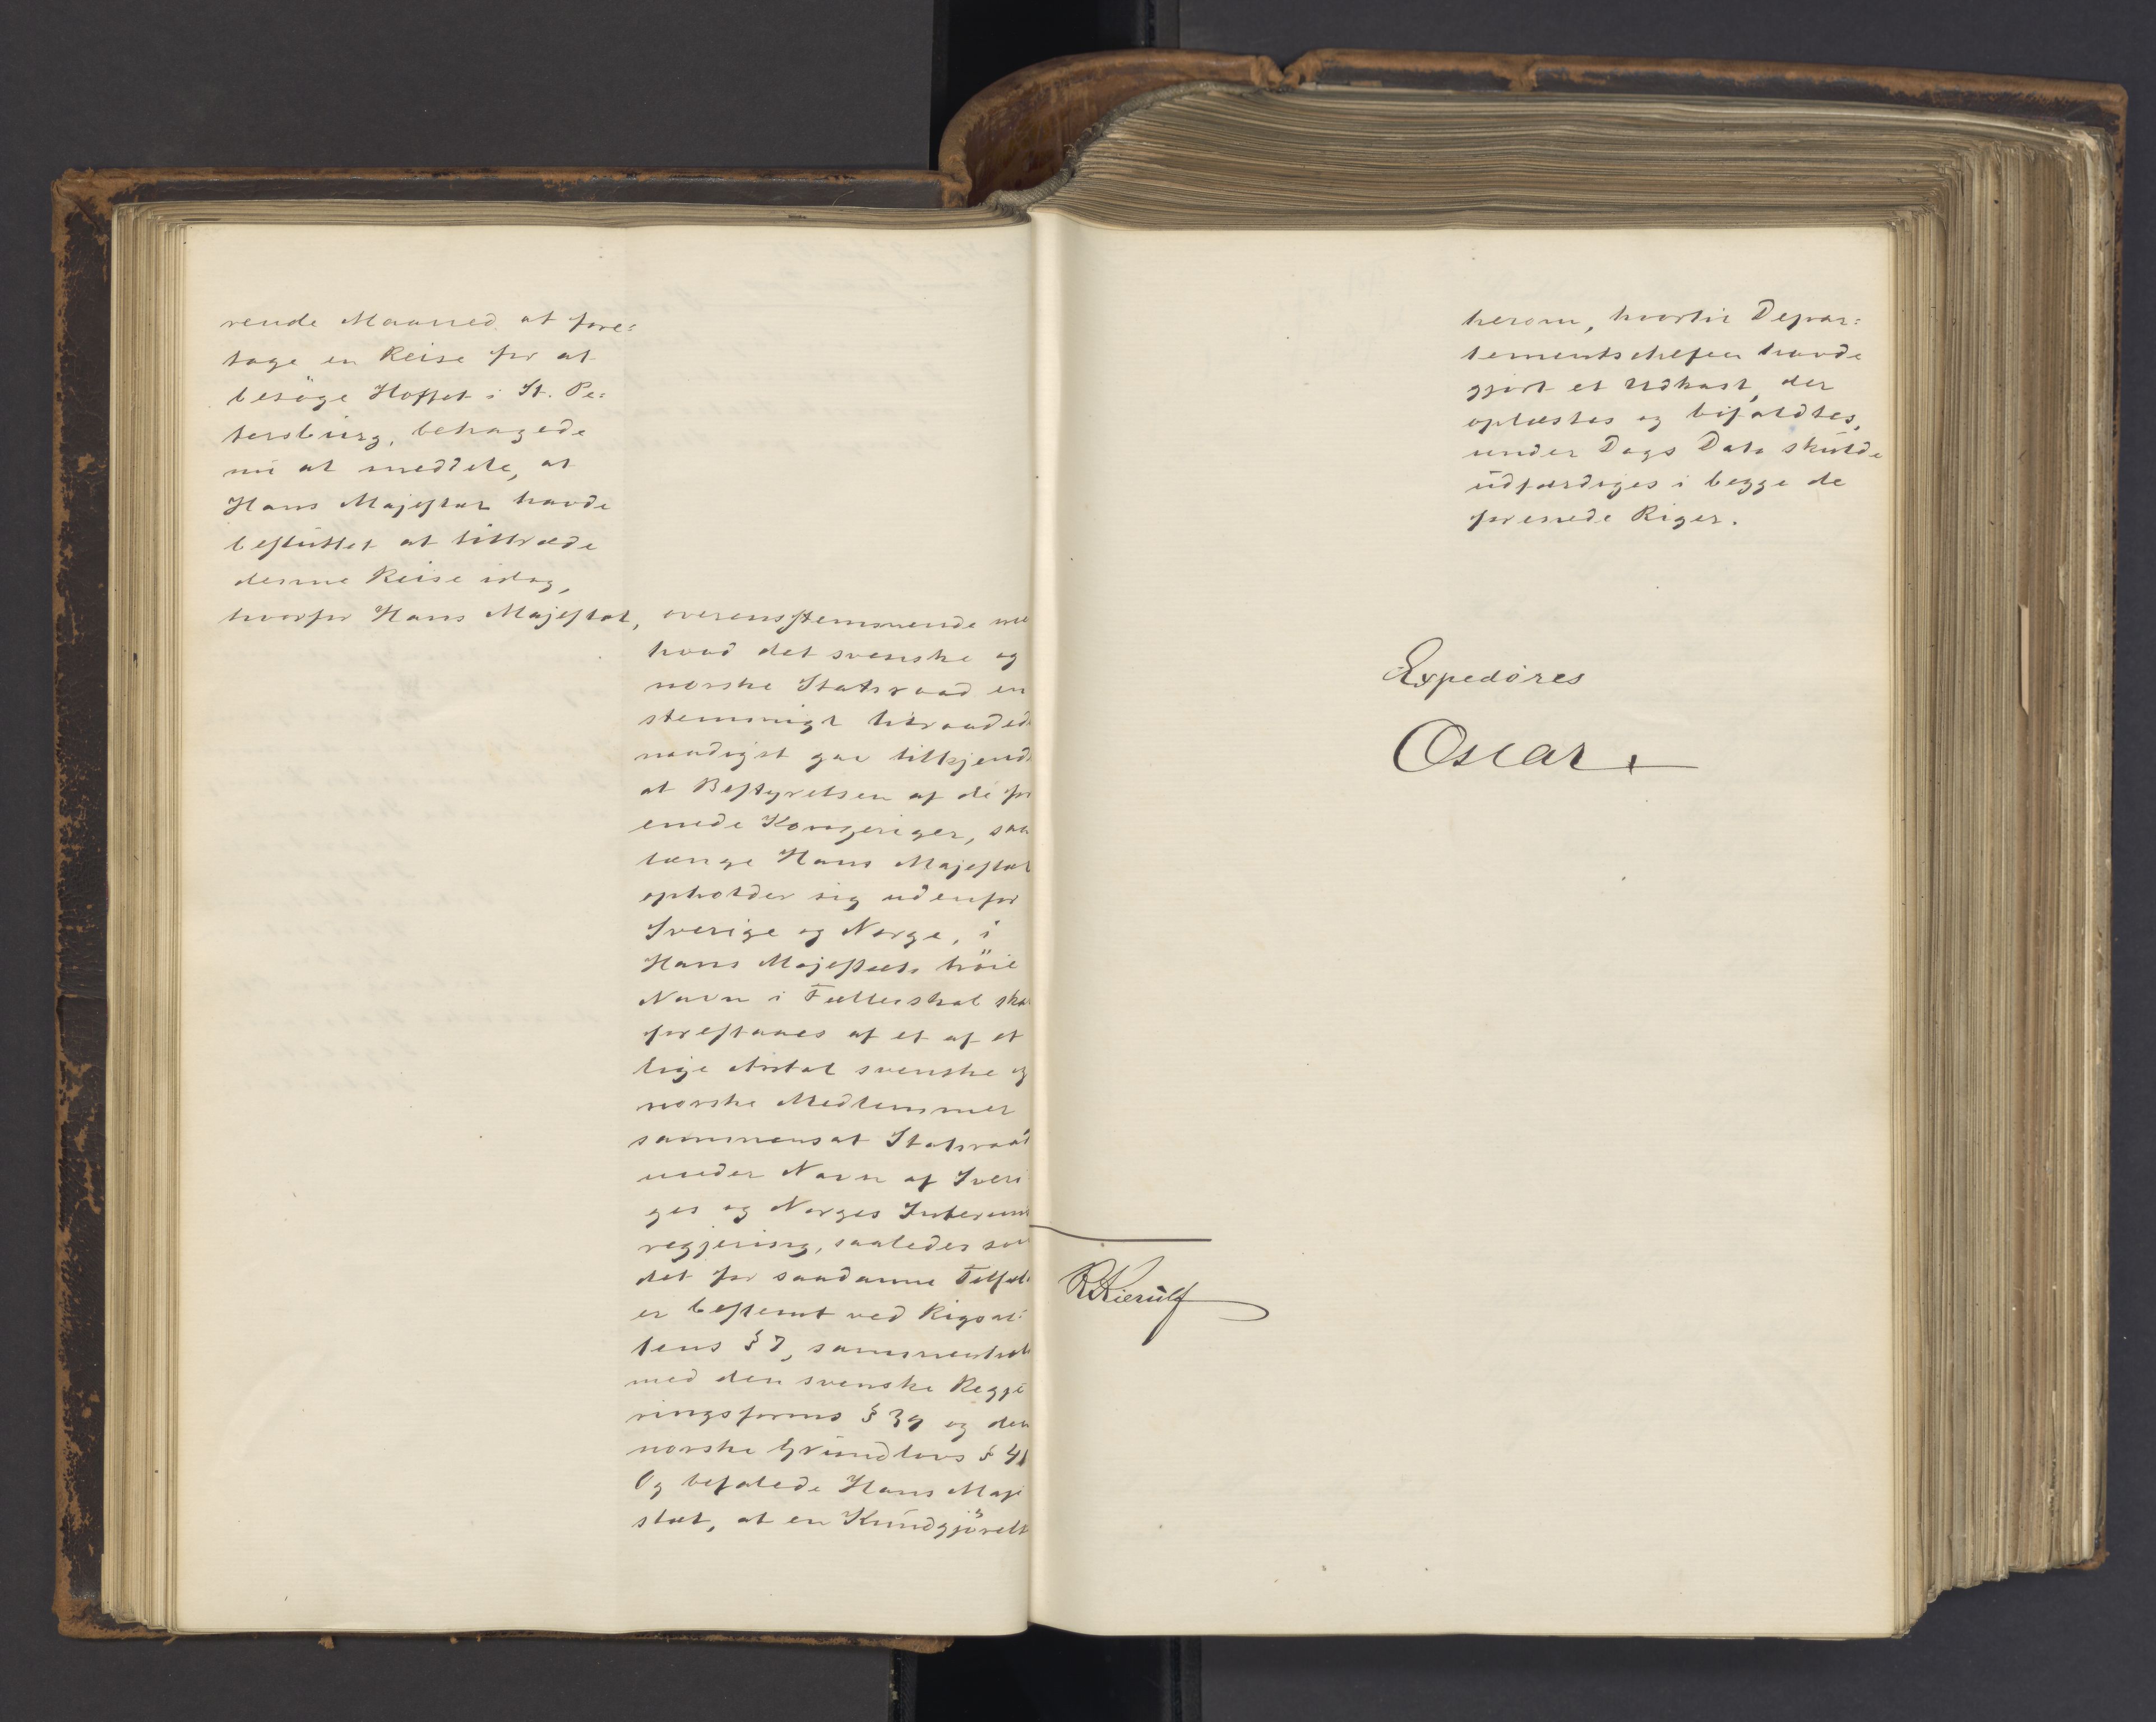 rende Maaned at fore:
tage en Reise for at
besöge Hoffet i St. Pe:
tersburg, behagede
nu at meddele, at
Hans Majestæt havde
besluttet at tiltræde
denne Reise idag,
hvorfor Hans Majestæt, overensstemmende me
hvad det svenske og
norske Statsraad en
stemmigt tilraadede
naadigst gav tilkjende
at Bestyrelsen af de for
enede Kongeriger, saa
længe Hans Majestæt
opholder sig udenfor
Sverige og Norge, i
Hans Majestæts höie
Navn i Fællesskab skal
forestaaes af et af et
lige Antal svenske og
norske Medlemmer
sammensat Statsraad
under Navn af Sveri
ges og Norges Interims
regjering, saaledes som
det for saadanne Tilfælde
er bestemt ved Rigsak
tens § 7, sammenholdt
med den svenske Regje
ringsforms § 39 og den
norske Grundlovs § 41
Og befalede Hans Maje
stæt, at en Kundgjörelse
herom, hvortil Depar:
tementschefen havde
gjort et Udkast, der
oplæstes og bifaldtes,
under Dags Dato skulde
udfærdiges i begge de
forenede Riger.
Expederes
Oscar
R Kierulf